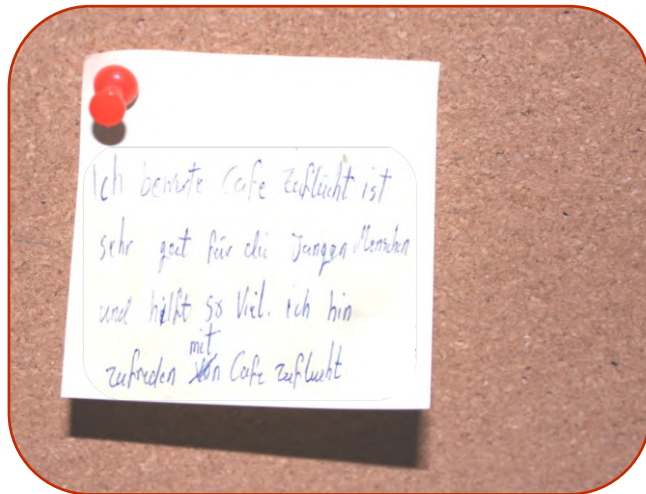 Ich bewute Cafe Zuflücht ist
sehr gut für die Jungen Menschen
und hilft so Viel. ich bin
zufrieden mit Cafe zuflucht